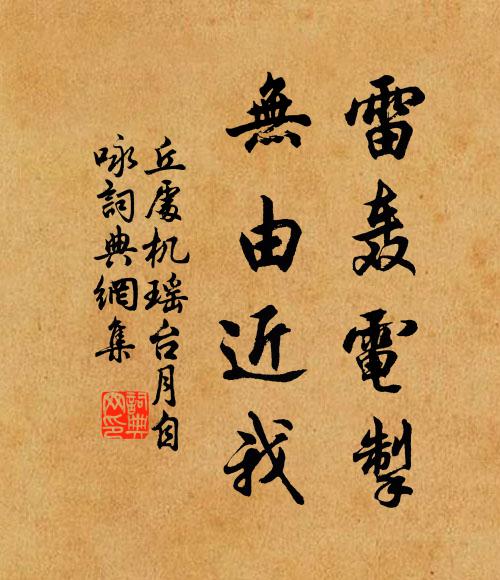 雷轰電掣
無由近我
丘處机瑶台月自
咏詞典網集
詞典
网印